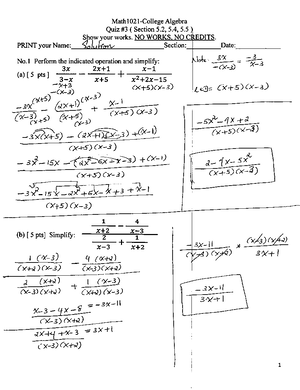 Math1021-College Algebra
Quiz #3 ( Section 5.2, 5.4, 5.5 )
Show your works. NO WORKS, NO CREDITS.
PRINT your Name: Solution Section: Date:
No.1 Perform the indicated operation and simplify.
(a) [ 5 pts ] 3x/(3−x) − (2x+1)/(x+5) + (x−1)/(x²+2x−15)
Note: 3x/(-(x-3)) = -3/(x-3)
LCD = (x+5)(x-3)
-3x(x+5)/((x-3)(x+5)) - (2x+1)(x-3)/((x+5)(x-3)) + (x-1)/((x+5)(x-3))
-3x(x+5) - (2x+1)(x-3) + (x-1)
(x+5)(x-3)
-3x²-15x - (2x²-6x+x-3) + (x-1)
(x+5)(x-3)
-3x²-15x-2x²+6x-x+3+x-1
(x+5)(x-3)
-5x²-9x+2
(x+5)(x-3)
2-9x-5x²
(x+5)(x-3)
(b) [ 5 pts] Simplify: (1/(x+2) − 4/(x−3)) / (2/(x−3) + 1/(x+2))
1 (x-3)/((x+2)(x-3)) - 4 (x+2)/((x-3)(x+2))
2 (x+2)/((x-3)(x+2)) + 1 (x-3)/((x+2)(x-3))
x-3-4x-8 = -3x-11
(x-3)(x+2)
2x+4+x-3 = 3x+1
(x-3)(x+2)
-3x-11/((x-3)(x+2)) * (x-3)(x+2)/(3x+1)
-3x-11
3x+1
1